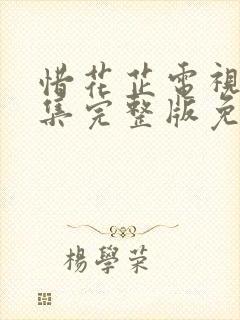 惜花芷電視
集完整版免
楊學荣